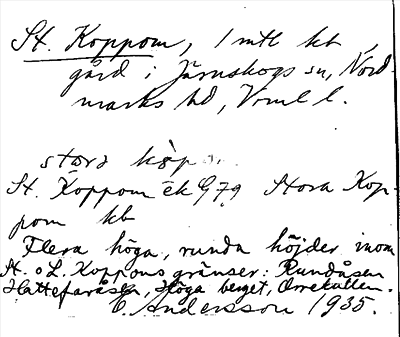 St. Koppom, 1 mtl kb
gård i Järnskogs sn, Nord-
marks hd, Vrml l.
stora köp
St. Koppom ek G 79 Stora Kop-
pom kb
Flera höga, runda höjder inom
St. o L. Koppoms gränser: Rundåsen
Hattefaråsen, Höga berget, Orrekullen.
E. Andersson 1935.